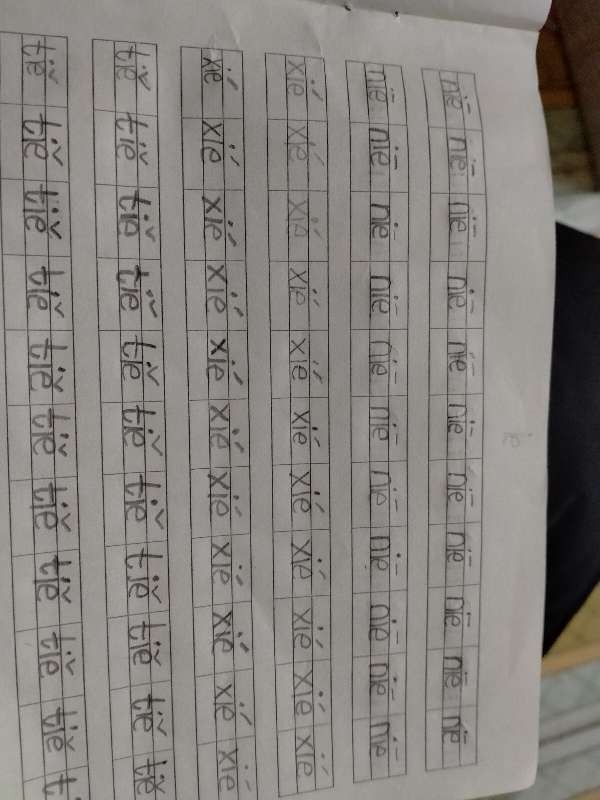 niē niē niē niē niē niē niē niē niē niē niē
niē niē niē niē niē niē niē niē niē niē niē
xié xié xié xié xié xié xié xié xié xié xié
xié xié xié xié xié xié xié xié xié xié xié
tiě tiě tiě tiě tiě tiě tiě tiě tiě tiě tiě
tiě tiě tiě tiě tiě tiě tiě tiě tiě tiě